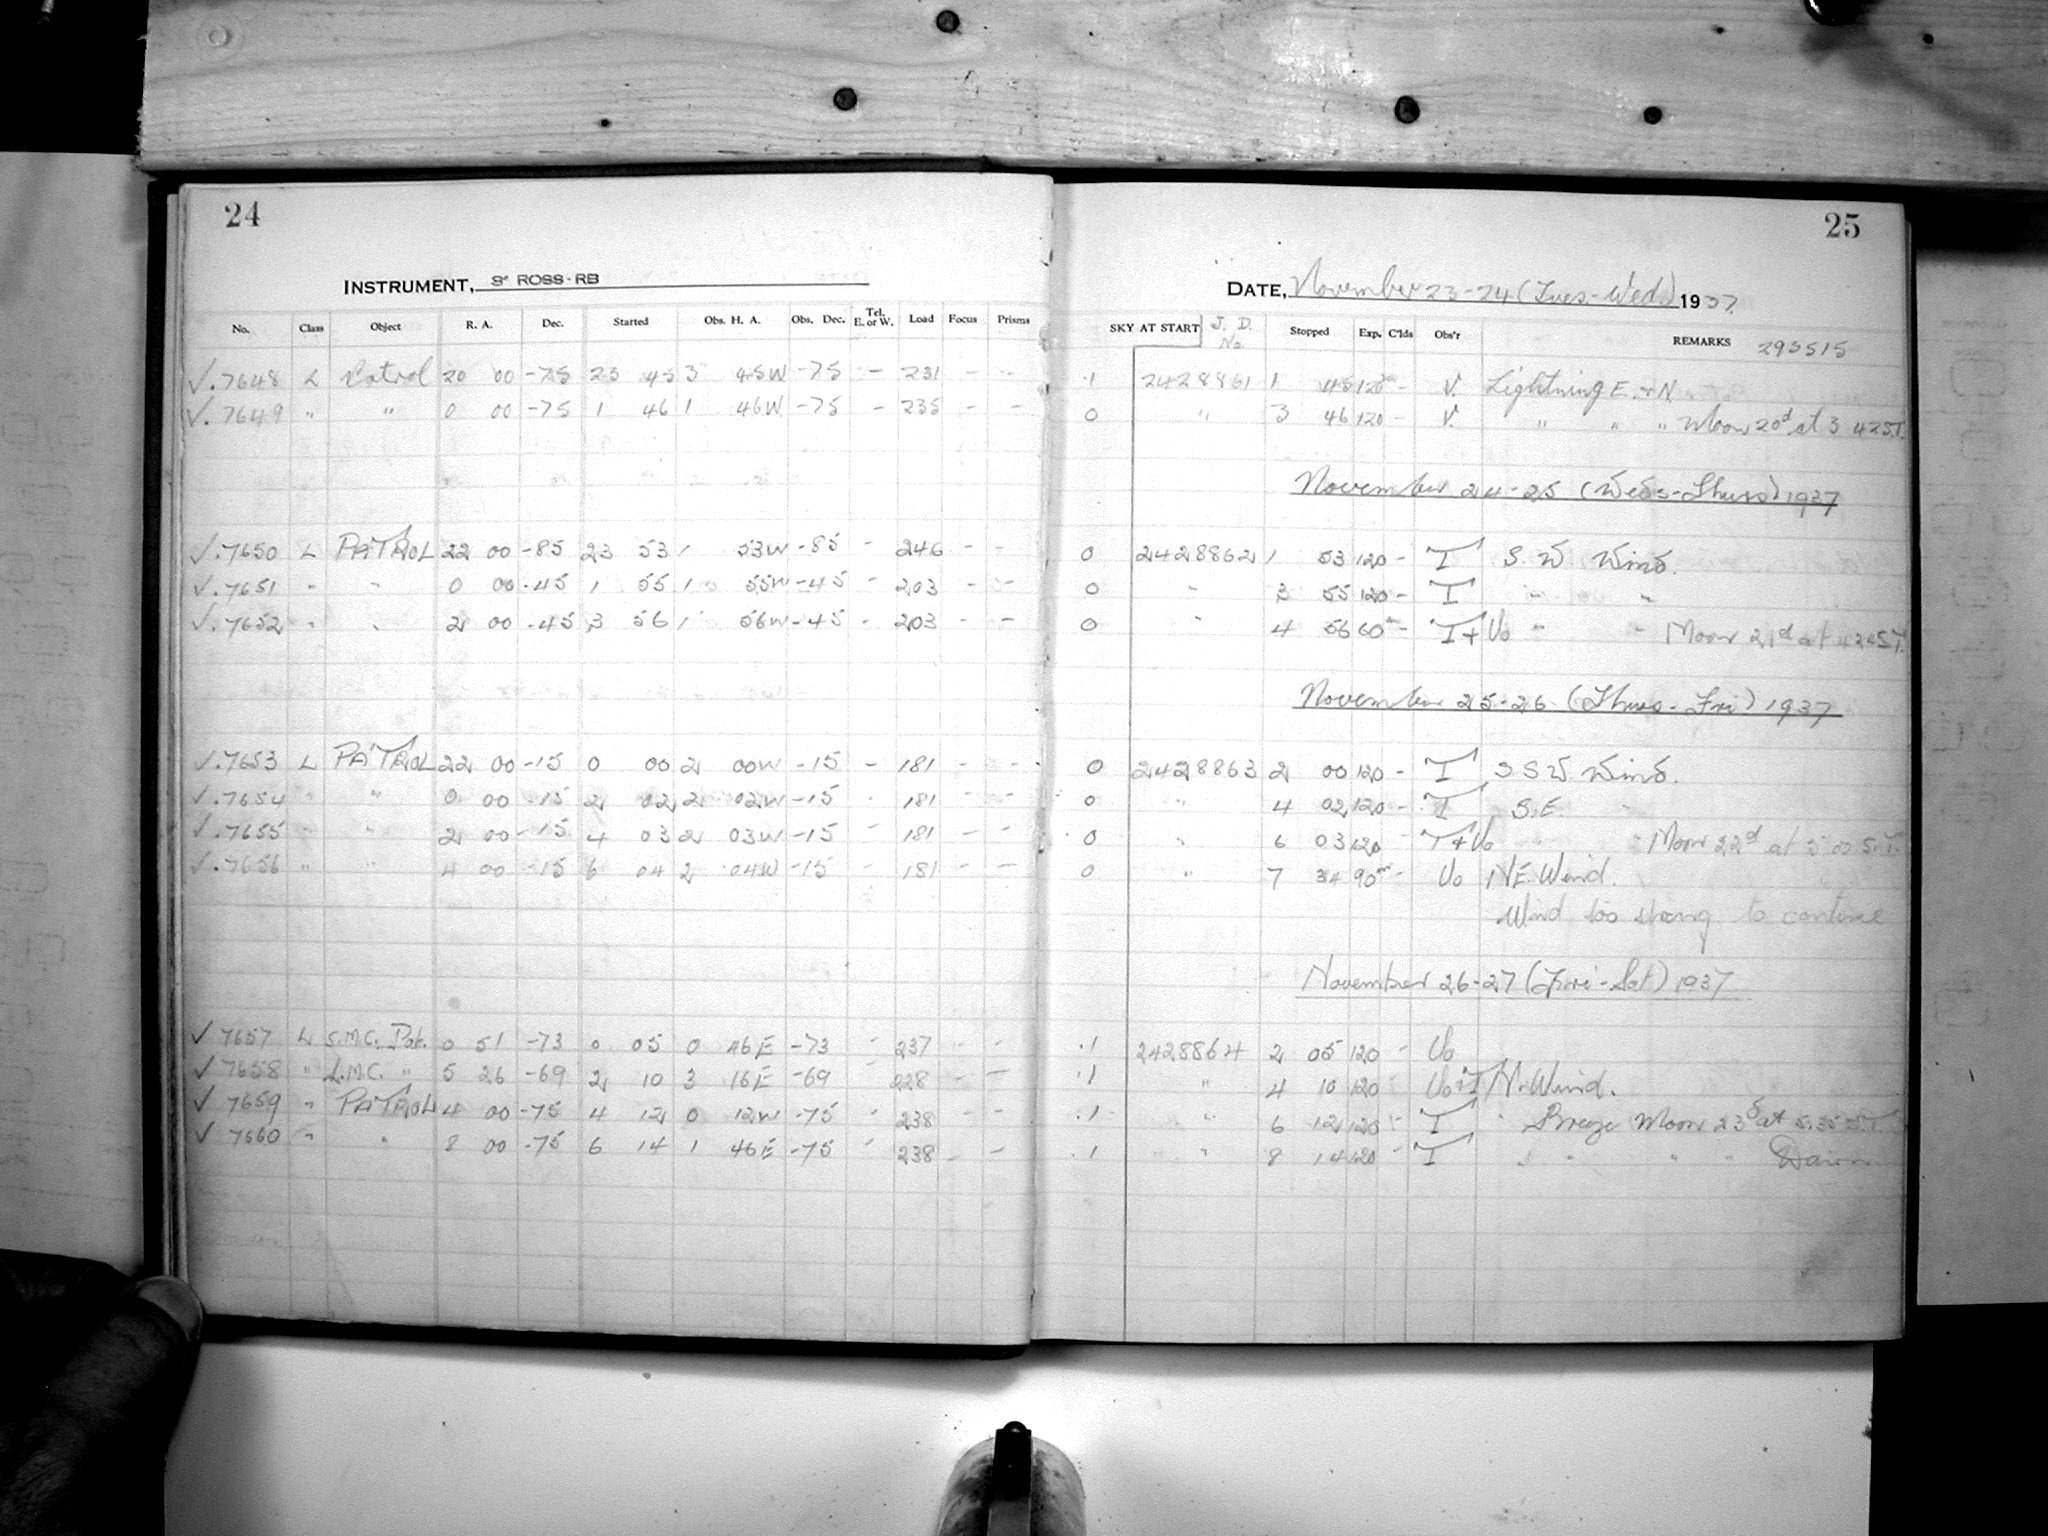 24
INSTRUMENT, 3" ROSS-RB
No. Class Object R. A. Dec. Started Obs. H. A. Obs. Dec. Tel. E. or W. Load Focus Prisms
✓.7648 L Patrol 20 00 -75 23 45 3 45W -75 - 231 - -
✓.7649 " " 0 00 -75 1 46 1 46W -75 - 235 - -
✓.7650 L PATROL 22 00 -85 23 53 1 53W -85 - 246 - -
✓.7651 " " 0 00 -45 1 55 1 55W -45 - 203 - -
✓.7652 " " 2 00 -45 3 56 1 56W -45 - 203 - -
✓.7653 L PATROL 22 00 -15 0 00 2 00W -15 - 181 - -
✓.7654 " " 0 00 -15 2 02 2 02W -15 - 181 - -
✓.7655 " " 2 00 -15 4 03 2 03W -15 - 181 - -
✓.7656 " " 4 00 -15 6 04 2 04W -15 181 - -
✓ 7657 L S.M.C. Pat. 0 51 -73 0 05 0 46E -73 - 237 - -
✓ 7658 " L.M.C. " 5 26 -69 2 10 3 16E -69 - 228 - -
✓ 7659 " PATROL 4 00 -75 4 12 0 12W -75 - 238 - -
✓ 7660 " " 8 00 -75 6 14 1 46E -75 - 238 - -
25
DATE, November 23-24 (Tues.-Wed.) 1937.
SKY AT START J. D. No. Stopped Exp. C'lds Obs'r REMARKS 293515
.1 2428861 1 45 120m - V. Lightning E. + N.
0 " 3 46 120 - V. " " " Moon 20d at 3 42 S.T.
November 24-25 (Weds-Thurs) 1937
0 2428862 1 53 120 - T S. W Wind.
0 " 3 55 120 - T " "
0 " 4 56 60m - T+Uo " " Moon 21d at 4 24 S.T.
November 25-26 (Thurs-Fri) 1937
0 2428863 2 00 120 - T S S W Wind.
0 " 4 02 120 - T S.E. "
0 " 6 03 120 - T+Uo " " Moon 22d at 5 00 S.T.
0 " 7 34 90m - Uo NE Wind.
Wind too strong to continue
November 26-27 (Fri-Sat) 1937
.1 2428864 2 05 120 - Uo
.1 " 4 10 120 - Uo+T N. Wind.
.1 " 6 12 120 - T " Breeze Moon 23d at 5:35 S.T.
.1 " 8 14 120 - T " " " " Dawn